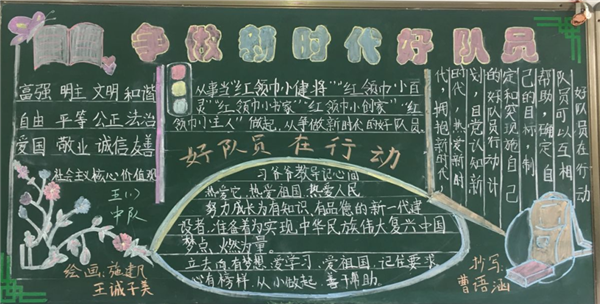 争做新时代好队员
富强 明主 文明 和谐
自由 平等 公正 法治
爱国 敬业 诚信 友善
社会主义核心价值观
五(1)
中队
从事当“红领巾小健将”“红领巾小百
灵”“红领巾小书家”“红领巾小创家”“红
领巾小主人”做起,从争做新时代的好队员
好队员在行动
习爷爷教导记心间
热爱党、热爱祖国、热爱人民
努力成长为有知识、有品德的新一代建
设者,准备着为实现中华民族伟大复兴中国
梦点、燃力量。
立志向有梦想、爱学习、爱祖国,记住要求
心有榜样,从小做起,善于帮助。
好队员在行动
队员可以互相
帮助,确定自
己的目标,制
定和实施自己
的好队员行动计
划,自觉认知新
时代,热爱新时
代,拥抱新时代。
绘画:施建凡
王诚子美
抄写:
曹语涵